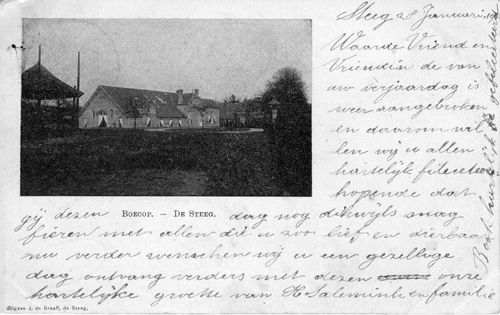 Steeg 28 Januari
Waarde Vriend en
Vriendin de van
uw verjaardag is
weer aangebroken
en daarom wil
len wij u allen
hartelijk fileciteeren
hopende dat
gij dezen dag nog dikwijls mag
BOECOP. — DE STEEG.
fieren met allen die u zoo lief en dierbaar
nu verder wenschen wij u een gezellige
dag ontvang verders met dezen onze
hartelijke groete van
en familie
Uitgave J. de Graaff, de Steeg.